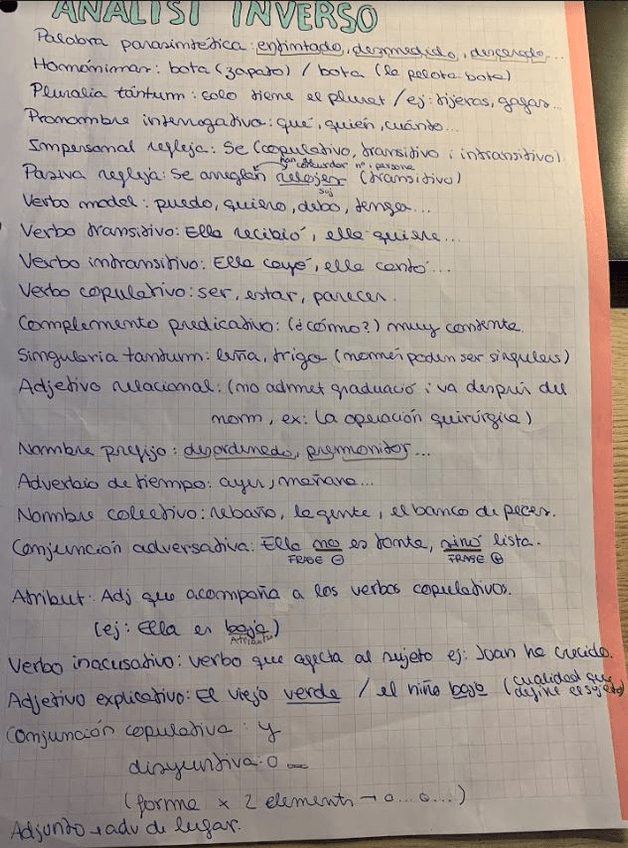 ANÀLISI INVERSO
Palabra parasintética: entintado, desmedido, descarado...
Homónimas: bota (zapato) / bota (la pelota bota)
Pluralia tántum: solo tiene el plural / ej: tijeras, gafas...
Pronombre interrogativo: qué, quién, cuánto...
Impersonal refleja: Se (copulativo, transitivo i intransitivo)
han concordar nº i persona
Pasiva refleja: Se arreglan relojes (transitivo)
suj
Verbo modal: puedo, quiero, debo, tengo...
Verbo transitivo: Ella recibió, ella quiere...
Verbo intransitivo: Ella cayó, ella cantó...
Verbo copulativo: ser, estar, parecer.
Complemento predicativo: (¿cómo?) muy contenta
Singularia tantum: leña, trigo (només poden ser singulars)
Adjetivo relacional: (no admet graduació i va després del
nom, ex: la operación quirúrgica)
Nombre prefijo: desordenado, premonitor...
Adverbio de tiempo: ayer, mañana...
Nombre colectivo: rebaño, la gente, el banco de peces.
Conjunción adversativa: Ella no es tonta, sinó lista.
FRASE - FRASE +
Atribut: Adj que acompaña a los verbos copulativos.
(ej: Ella es baja)
Atributo
Verbo inacusativo: verbo que afecta al sujeto ej: Joan ha crecido.
Adjetivo explicativo: El viejo verde / el niño bajo (cualidad que
define el sujeto)
Conjunción copulativa: y
disyuntiva: o
(forma x 2 elements → o... o...)
Adjunto → adv de lugar.